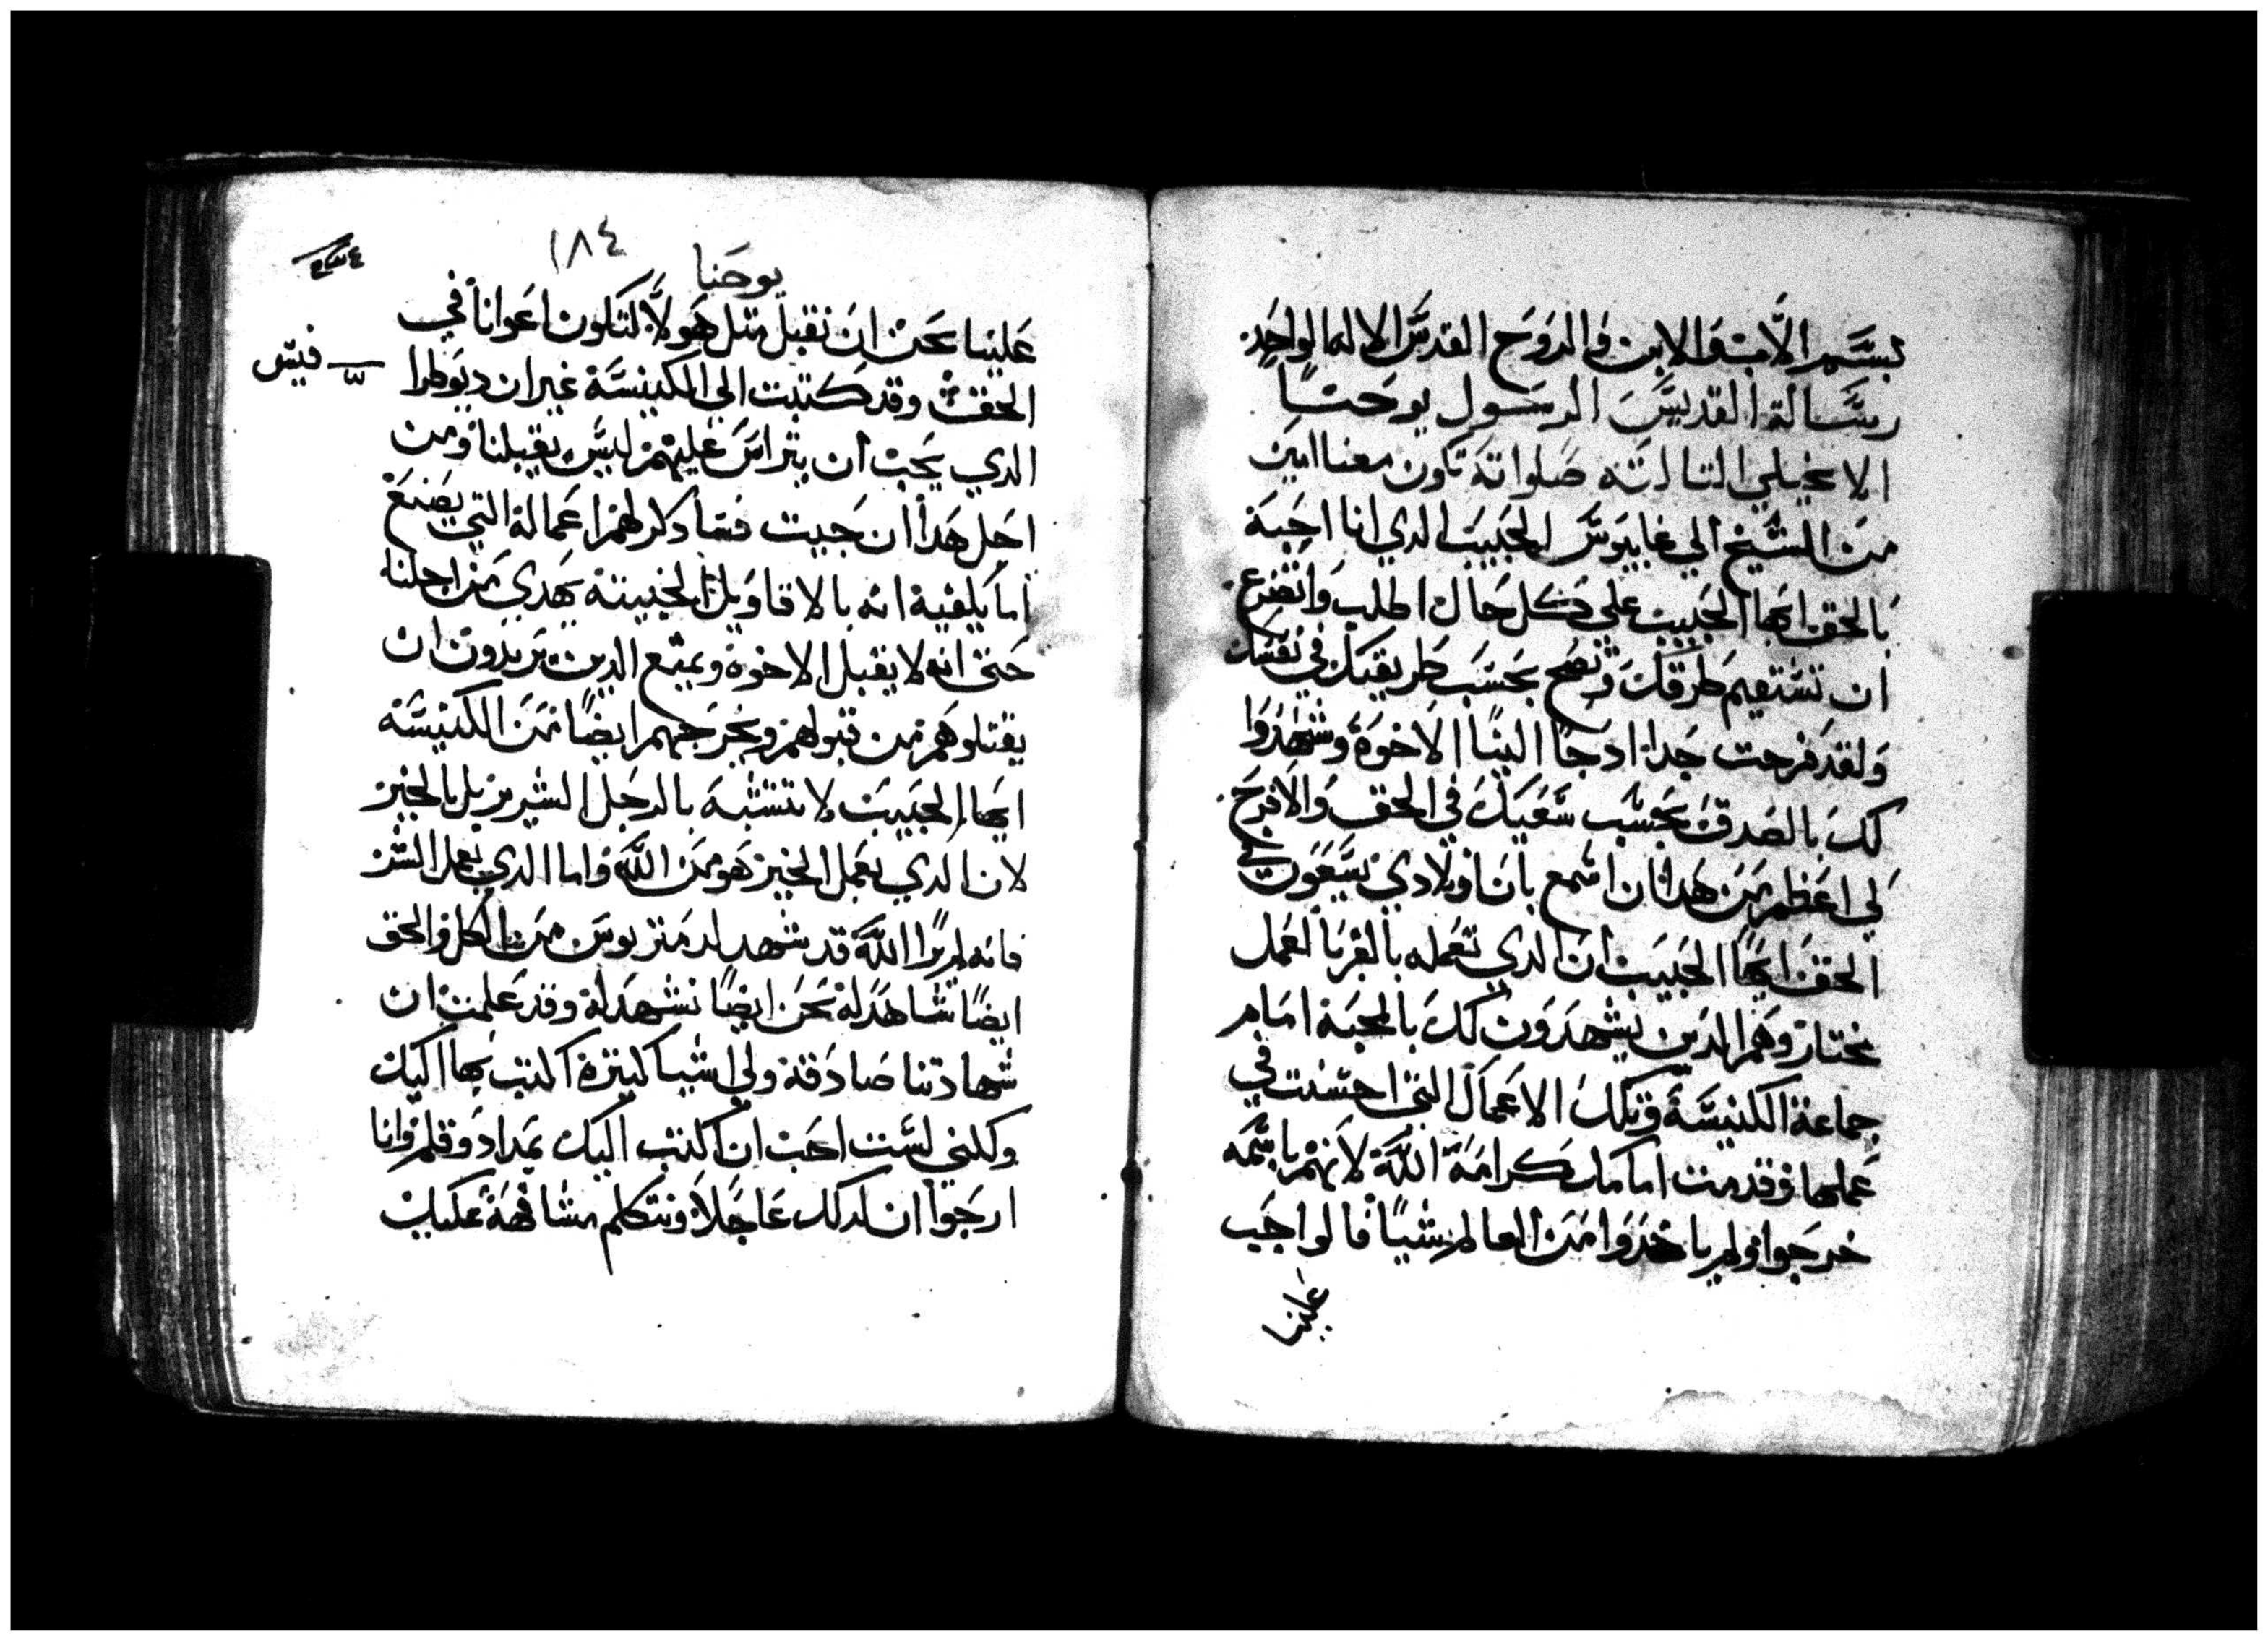 بسم الاب والابن والروح القدس الاله الواحد
رسالة القديس الرسول يوحنا
الانجيلي التالته صلواته تكون معنا امين
من الشيخ الي غاييوس الحبيب الدي انا احبة
بالحق ايها الحبيب علي كل حال اطلب واتضرع
ان تستقيم طرقك وتصح بحسب طريقك في نفسك
ولقد فرحت جدا ادجا الينا الاخوة وشهدوا
لك بالصدق بحسب سعيك في الحق والافرح
لي اعظم من هدا ان اسمع بان اولادي يسعون في
الحق ايها الحبيب ان الدي تعمله بالغربا لعمل
مختار وهم الدين يشهدون لك بالمحبة امام
جماعة الكنيسة وتلك الاعمال التي احسنت في
عملها وقدمت امامك كرامة الله لانهم باسمه
خرجوا ولم ياخدوا من العالم شيا فالواجب
علينا
١٨٤
يوحنا
علينا نحن ان نقبل متل هولا لتكون اعوانا في
الحق وقد كتبت الي الكنيسة غير ان ديوطرا
فيس
الدي يحب ان يتراس عليهم ليس يقبلنا ومن
اجل هدا ان جيت فسادكر لهم اعماله التي يصنع
اما يكفيه انه بالاقاويل الخبيته يهدي من اجلنا
حتي انه لا يقبل الاخوة ويمنع الدين يريدون ان
يقتلوهم من قبولهم ويخرجهم ايضا من الكنيسة
ايها الحبيب لا تتشبه بالرجل الشرير بل بالخير
لان الدي يعمل الخير هو من الله واما الدي يعمل الشر
فانه لم يرا الله قد شهد لدمتريوس من الكل والحق
ايضا شاهد له نحن ايضا نشهد له وقد علمت ان
شهادتنا صادقة ولي اشيا كتيرة اكتب بها اليك
ولكني لست احب ان اكتب اليك بمداد وقلم وانا
ارجوا ان ادلك عاجلا ونتكلم مشافهة عليك